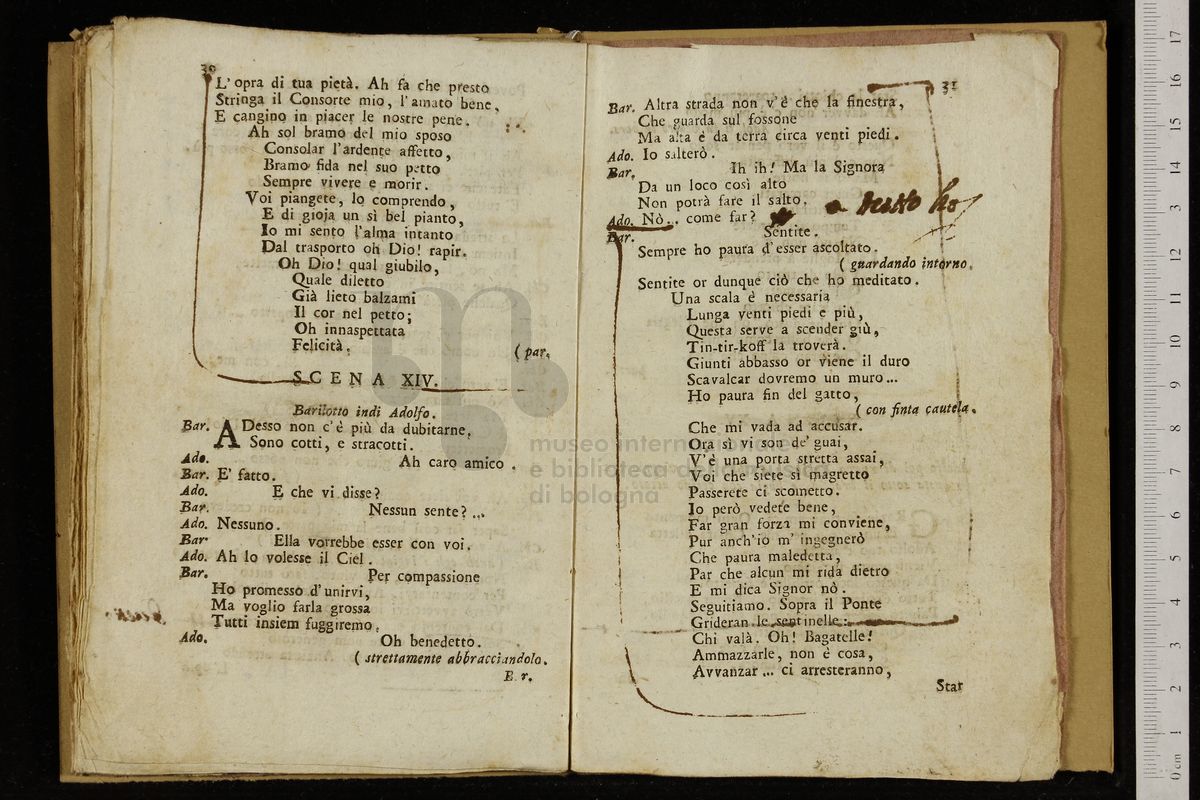 30
L'opra di tua pietà. Ah fa che presto
Stringa il Consorte mio, l'amato bene,
E cangino in piacer le nostre pene.
Ah sol bramo del mio sposo
Consolar l'ardente affetto,
Bramo fida nel suo petto
Sempre vivere e morir.
Voi piangete, lo comprendo,
E di gioja un sì bel pianto,
Io mi sento l'alma intanto
Dal trasporto oh Dio! rapir.
Oh Dio! qual giubilo,
Quale diletto
Già lieto balzami
Il cor nel petto;
Oh innaspettata
Felicità.
( par.
SCENA XIV.
Barilotto indi Adolfo.
Bar. ADesso non c'è più da dubitarne,
Sono cotti, e stracotti.
Ado. Ah caro amico.
Bar. E' fatto.
Ado. E che vi disse?
Bar. Nessun sente? ...
Ado. Nessuno.
Bar. Ella vorrebbe esser con voi.
Ado. Ah lo volesse il Ciel.
Bar. Per compassione
Ho promesso d'unirvi,
Ma voglio farla grossa
Tutti insiem fuggiremo.
Ado. Oh benedetto.
( strettamente abbracciandolo.
B r.
31
Bar. Altra strada non v'è che la finestra,
Che guarda sul fossone
Ma alta è da terra circa venti piedi.
Ado. Io salterò.
Bar. Ih ih! Ma la Signora
Da un loco così alto
Non potrà fare il salto.
Ado. Nò.. come far?
Bar. Sentite.
Sempre ho paura d'esser ascoltato.
( guardando intorno.
Sentite or dunque ciò che ho meditato.
Una scala è necessaria
Lunga venti piedi e più,
Questa serve a scender giù,
Tin-tir-koff la troverà.
Giunti abbasso or viene il duro
Scavalcar dovremo un muro...
Ho paura fin del gatto,
( con finta cautela.
Che mi vada ad accusar.
Ora sì vi son de' guai,
V'è una porta stretta assai,
Voi che siete sì magretto
Passerete ci scometto.
Io però vedete bene,
Far gran forza mi conviene,
Pur anch'io m' ingegnerò
Che paura maledetta,
Par che alcun mi rida dietro
E mi dica Signor nò.
Seguitiamo. Sopra il Ponte
Grideran le sentinelle:
Chi valà. Oh! Bagatelle!
Ammazzarle, non è cosa,
Avvanzar ... ci arresteranno,
Star
museo internazionale
e biblioteca della musica
di bologna
0 cm 1 2 3 4 5 6 7 8 9 10 11 12 13 14 15 16 17